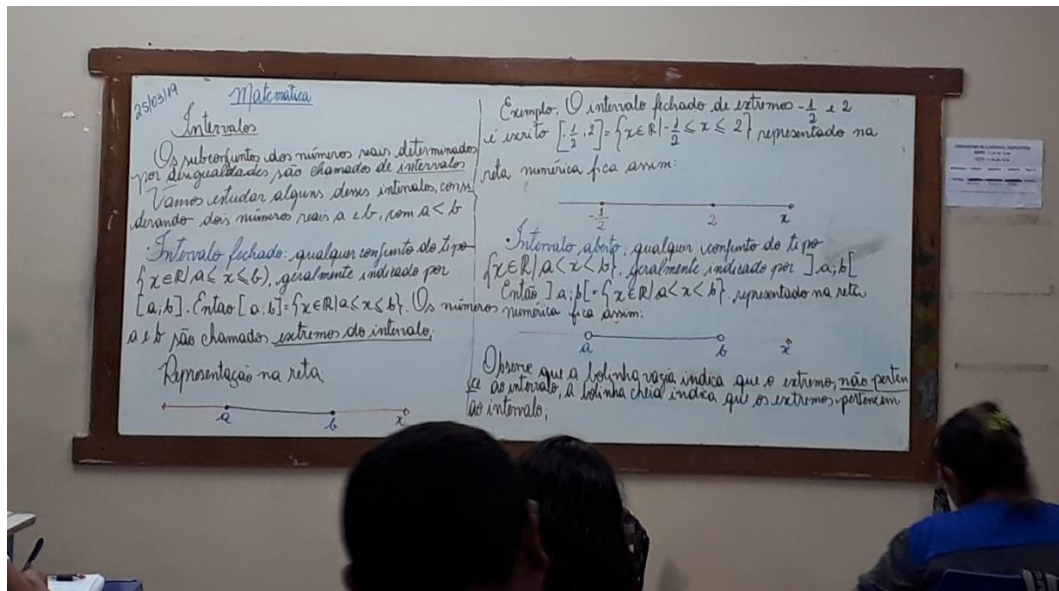 25/03/19
Matematica
Intervalos
Os subconjuntos dos números reais determinados
por desigualdades são chamados de intervalos
Vamos estudar alguns desses intervalos, consi
derando dois números reais a e b, com a < b
Intervalo fechado: qualquer conjunto do tipo
{x ∈ R / a ≤ x ≤ b}, geralmente indicado por
[a; b]. Então [a; b] = {x ∈ R / a ≤ x ≤ b}. Os números
a e b são chamados extremos do intervalo,
Representação na reta:
a b x
Exemplo. O intervalo fechado de extremos -1/2 e 2
é escrito [-1/2; 2] = {x ∈ R / -1/2 ≤ x ≤ 2} representado na
reta numérica fica assim:
-1/2 2 x
Intervalo aberto: qualquer conjunto do tipo
{x ∈ R / a < x < b}, geralmente indicado por ]a; b[
Então ]a; b[ = {x ∈ R / a < x < b}, representado na reta
numérica fica assim:
a b x
Observe que a bolinha vazia indica que o extremo, não perten
ce ao intervalo, a bolinha cheia indica que os extremos pertencem
ao intervalo,